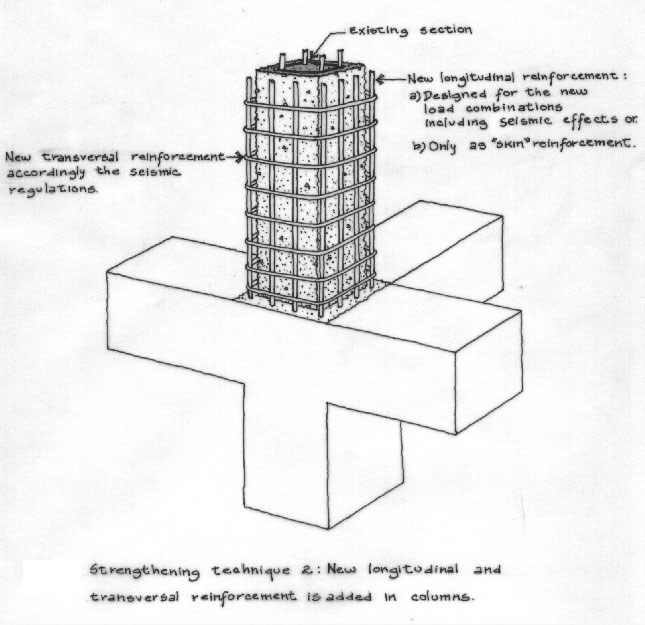 Existing section
New longitudinal reinforcement :
a) Designed for the new
load combinations
including seismic effects or
b) Only as "skin" reinforcement.
New transversal reinforcement
accordingly the seismic
regulations.
Strengthening technique 2: New longitudinal and
transversal reinforcement is added in columns.